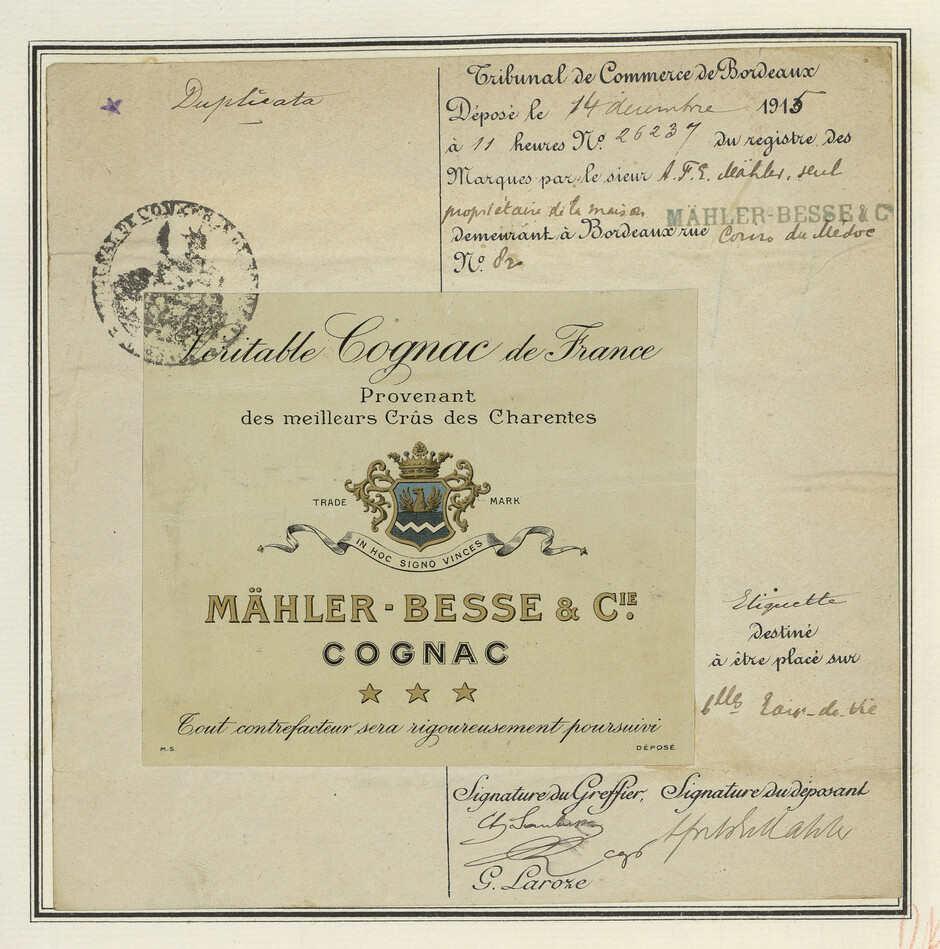 Duplicata
Tribunal de Commerce de Bordeaux
Déposé le 14 décembre 1915
à 11 heures Nº 26237 du registre des
Marques par le sieur A.F.E. Mähler, seul
propriétaire de la maison MÄHLER-BESSE & C
demeurant à Bordeaux rue Cours du Médoc
Nº 82
Véritable Cognac de France
Provenant
des meilleurs Crûs des Charentes
TRADE MARK
IN HOC SIGNO VINCES
MÄHLER-BESSE & CIE.
COGNAC
Tout contrefacteur sera rigoureusement poursuivi
M.S. DÉPOSÉ
Etiquette
destiné
à être placé sur
blles Eaux-de-Vie
Signature du Greffier, Signature du déposant
G. Laroze